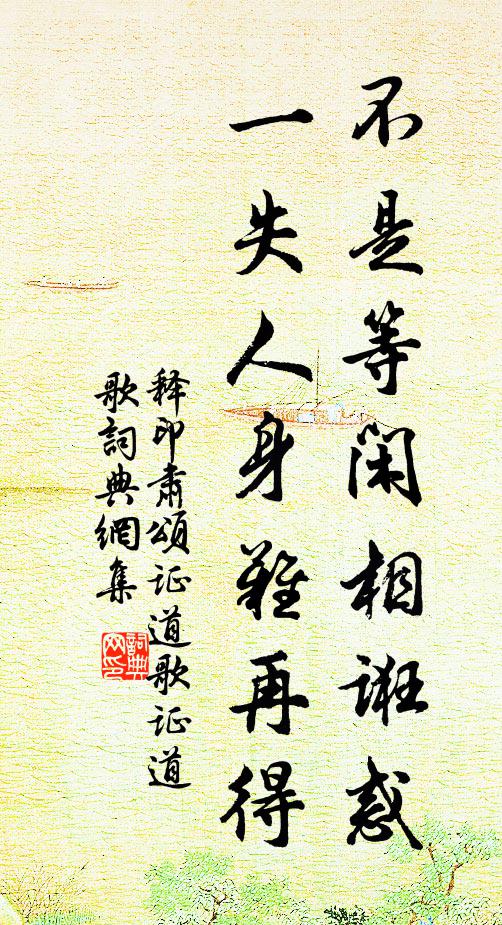 不是等闲相诳惑
一失人身难再得
释印肃颂证道歌证道
歌词典網集
詞典网印